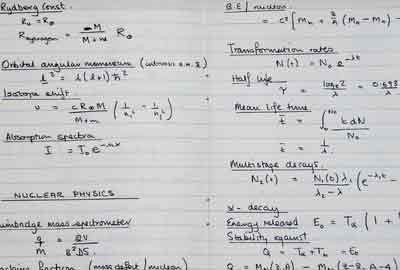 Rydberg Const.
R∞ = R∞
R Hydrogen = M / M+m R∞
Orbital angular momentum
l² = l(l+1)ħ²
Isotope shift.
υ = cR∞M / M+m (1/n₁² - 1/n₂²)
Absorption spectra
I = I₀e
NUCLEAR PHYSICS
mass spectrometer
q/M =
fraction (mass defect/nucleon)
B.E/nucleon
= c² [Mₙ + (Mₕ - Mₙ) -
Transformation rates
N(t) = N₀ e^-λt
Half life
τ = logₑ2 / λ = 0.693 / λ
Mean life time
t̄ = ∫₀^N₀ t dN / N₀
t̄ = 1/λ
Multistage decays.
N₂(t) = N₁(0)λ₁ / λ₂ - λ (e^-λ₁t -
α - decay
Energy released E₀ = Tα (1 +
Stability against
Q = Tα + = E₀
Q = (Z,A) - (Z-2, A-4)